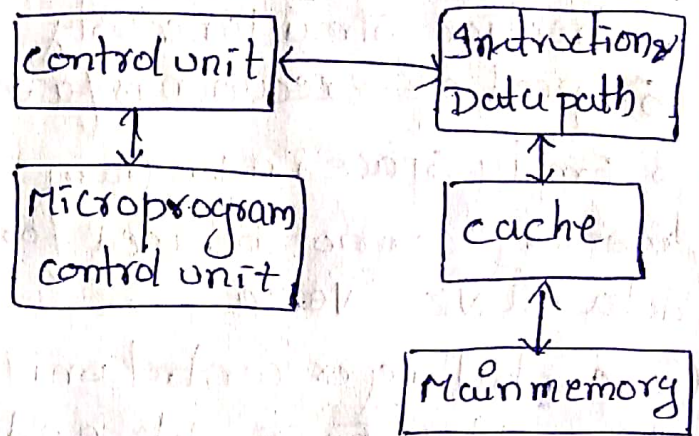 Control unit
Instruction &
Data path
Microprogram
control unit
cache
Main memory